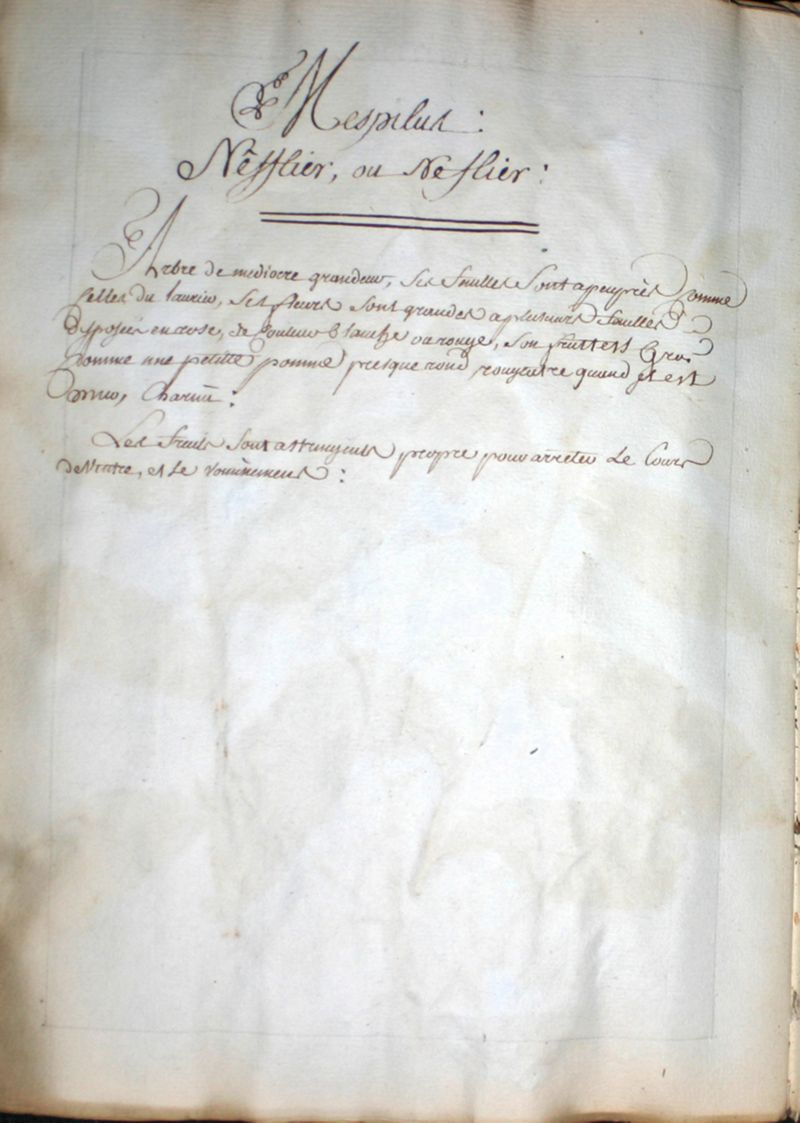 Mespilus:
Nêfflier, ou Neflier:
Arbre de mediocre grandeur, ses feuilles sont apeuprés comme
celles du laurier, ses fleurs sont grandes a plusieurs feuilles
disposées en rose, de couleur blanche ou rouge, son fruit est gros
comme une petitte pomme presque rond rougeatre quand il est
meur, charnu:
Les fruits sont astringents propre pour arreter le cours
de ventre, et le vomissement: